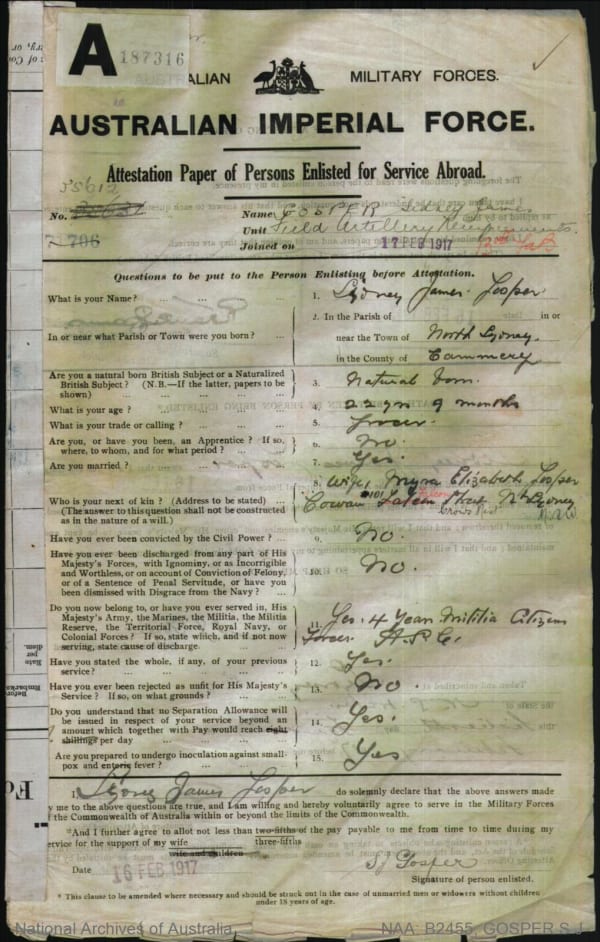 A 187316
AUSTRALIAN MILITARY FORCES.
AUSTRALIAN IMPERIAL FORCE.
Attestation Paper of Persons Enlisted for Service Abroad.
35612
No.
Name GOSPER Sidney James
Unit Field Artillery Reinforcements.
Joined on 17 FEB 1917
Questions to be put to the Person Enlisting before Attestation.
What is your Name? ... ... ... 1. Sydney James Gosper
In or near what Parish or Town were you born? ... 2. In the Parish of in or
near the Town of North Sydney,
in the County of Cammery
Are you a natural born British Subject or a Naturalized
British Subject? (N.B.—If the latter, papers to be
shown) ... ... ... 3. Natural born.
What is your age? ... ... ... 4. 22 yrs 9 months
What is your trade or calling? ... ... 5. Grocer.
Are you, or have you been, an Apprentice? If so,
where, to whom, and for what period? ... ... 6. No.
Are you married? ... ... ... 7. Yes.
Who is your next of kin? (Address to be stated) ...
(The answer to this question shall not be construed
as in the nature of a will.)
8. Wife, Myra Elizabeth Gosper
Cowan 101 Falcon Street Nth Sydney
Crows Nest N.S.W.
Have you ever been convicted by the Civil Power? ... 9. No.
Have you ever been discharged from any part of His
Majesty's Forces, with Ignominy, or as Incorrigible
and Worthless, or on account of Conviction of Felony,
or of a Sentence of Penal Servitude, or have you
been dismissed with Disgrace from the Navy? ... 10. No.
Do you now belong to, or have you ever served in, His
Majesty's Army, the Marines, the Militia, the Militia
Reserve, the Territorial Force, Royal Navy, or
Colonial Forces? If so, state which, and if not now
serving, state cause of discharge.
11. Yes. 4 Years Militia Citizen
Forces
Have you stated the whole, if any, of your previous
service? ... ... ... 12. Yes.
Have you ever been rejected as unfit for His Majesty's
Service? If so, on what grounds? ... ... 13. No
Do you understand that no Separation Allowance will
be issued in respect of your service beyond an
amount which together with Pay would reach eight
shillings per day ... ... ... 14. Yes.
Are you prepared to undergo inoculation against small-
pox and enteric fever? ... ... ... 15. Yes
I, Sydney James Gosper do solemnly declare that the above answers made
y me to the above questions are true, and I am willing and hereby voluntarily agree to serve in the Military Forces
f the Commonwealth of Australia within or beyond the limits of the Commonwealth.
*And I further agree to allot not less than two-fifths of the pay payable to me from time to time during my
ervice for the support of my wife three-fifths
wife and children
Date 16 FEB 1917
S J Gosper
Signature of person enlisted.
* This clause to be amended where necessary and should be struck out in the case of unmarried men or widowers without children
under 18 years of age.
National Archives of Australia NAA: B2455, GOSPER S J